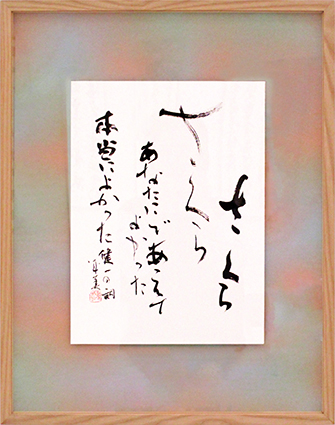 さくら
さくら
あなたにであえて
よかった
本当によかった